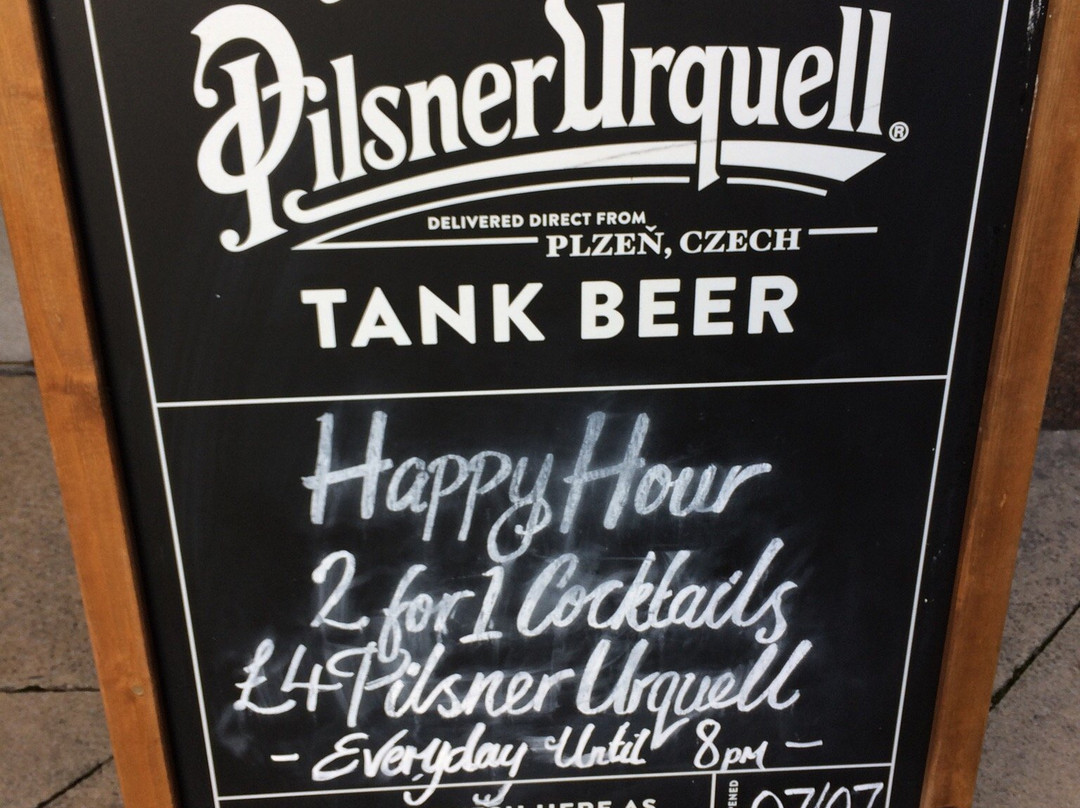 Pilsner Urquell®
DELIVERED DIRECT FROM
PLZEŇ, CZECH
TANK BEER
Happy Hour
2 for 1 Cocktails
£4 Pilsner Urquell
- Everyday Until 8pm -
HERE AS
07/07